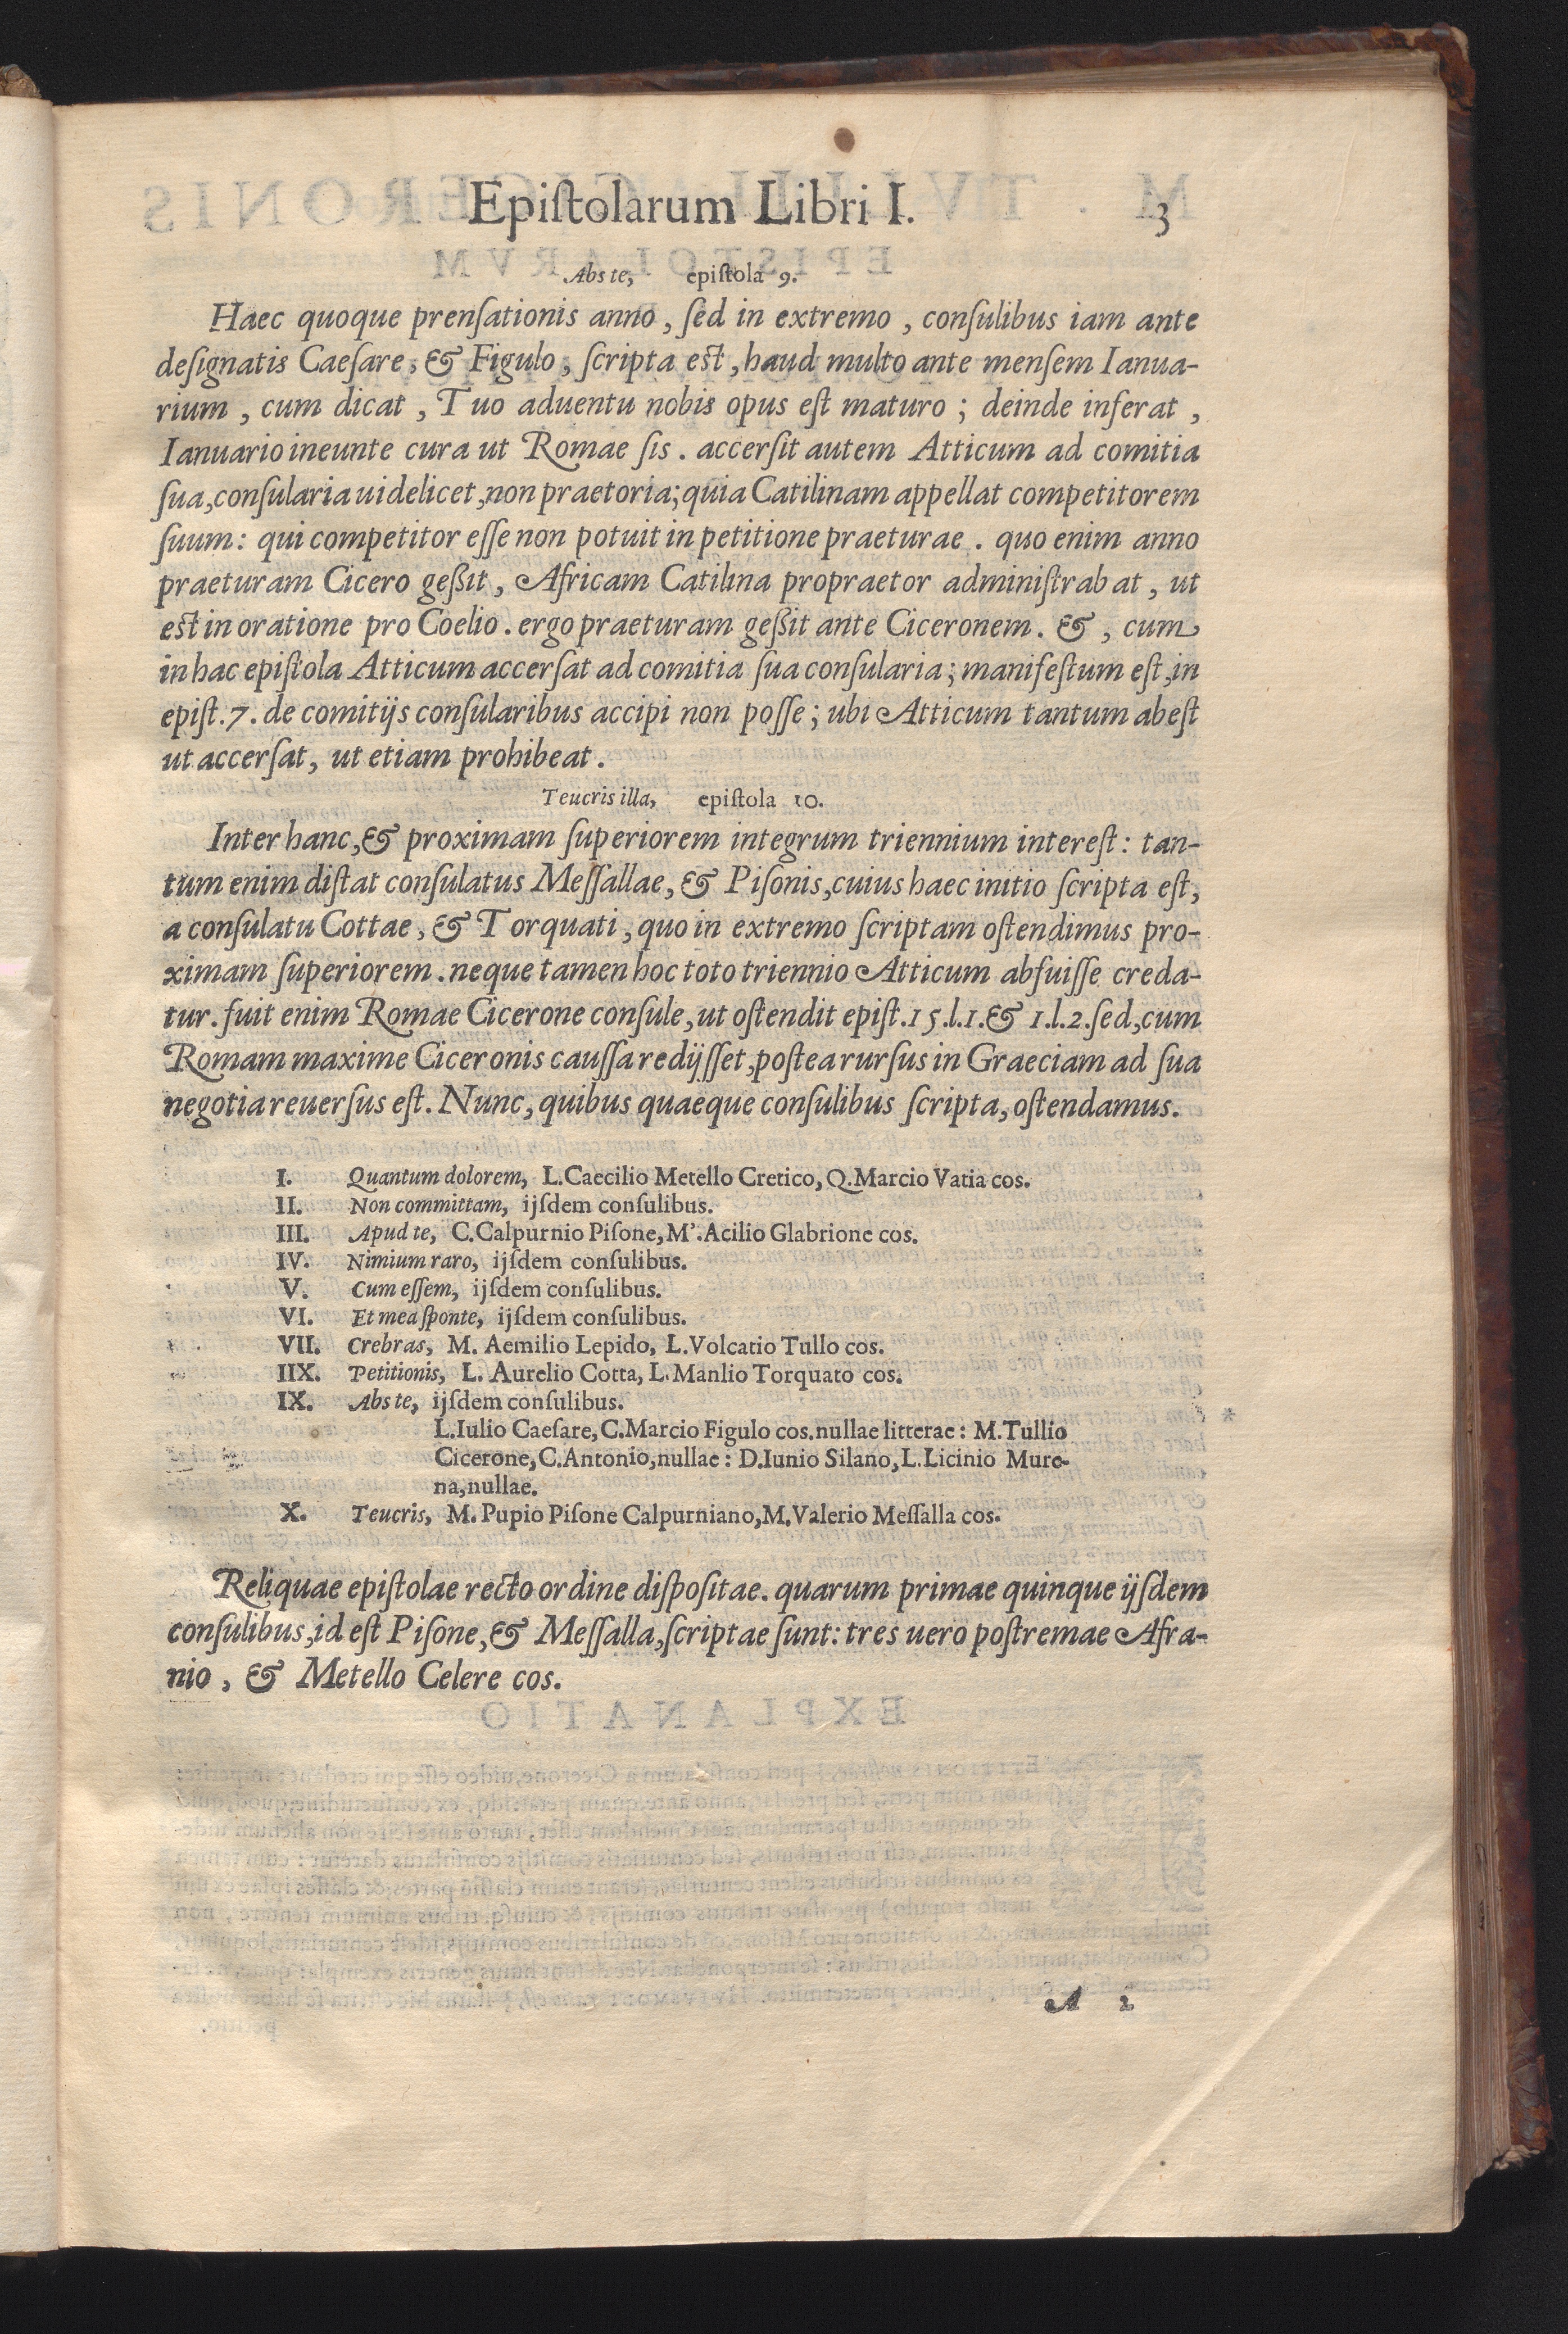 Epiſtolarum Libri I. 3
Abs te, epiſtola 9.
Haec quoque prenſationis anno, ſed in extremo, conſulibus iam ante
deſignatis Caeſare, & Figulo, ſcripta est, haud multo ante menſem Ianua-
rium, cum dicat, Tuo aduentu nobis opus eſt maturo; deinde inferat,
Ianuario ineunte cura ut Romae ſis. accerſit autem Atticum ad comitia
ſua, conſularia uidelicet, non praetoria; quia Catilinam appellat competitorem
ſuum: qui competitor eſſe non potuit in petitione praeturae. quo enim anno
praeturam Cicero geßit, Africam Catilina propraetor adminiſtrabat, ut
est in oratione pro Coelio. ergo praeturam geßit ante Ciceronem. &, cum
in hac epiſtola Atticum accerſat ad comitia ſua conſularia; manifeſtum eſt, in
epiſt. 7. de comitijs conſularibus accipi non poſſe; ubi Atticum tantum abeſt
ut accerſat, ut etiam prohibeat.
Teucris illa, epiſtola 10.
Inter hanc, & proximam ſuperiorem integrum triennium intereſt: tan-
tum enim diſtat conſulatus Meſſallae, & Piſonis, cuius haec initio ſcripta eſt,
a conſulatu Cottae, & Torquati, quo in extremo ſcriptam oſtendimus pro-
ximam ſuperiorem. neque tamen hoc toto triennio Atticum abfuiſſe creda-
tur. fuit enim Romae Cicerone conſule, ut oſtendit epiſt. 15. l. 1. & 1. l. 2. ſed, cum
Romam maxime Ciceronis cauſſa redijſſet, poſtea rurſus in Graeciam ad ſua
negotia reuerſus eſt. Nunc, quibus quaeque conſulibus ſcripta, oſtendamus.
I. Quantum dolorem, L. Caecilio Metello Cretico, Q. Marcio Vatia cos.
II. Non committam, ijſdem conſulibus.
III. Apud te, C. Calpurnio Piſone, M'. Acilio Glabrione cos.
IV. Nimium raro, ijſdem conſulibus.
V. Cum eſſem, ijſdem conſulibus.
VI. Et mea ſponte, ijſdem conſulibus.
VII. Crebras, M. Aemilio Lepido, L. Volcatio Tullo cos.
IIX. Petitionis, L. Aurelio Cotta, L. Manlio Torquato cos.
IX. Abs te, ijſdem conſulibus.
L. Iulio Caeſare, C. Marcio Figulo cos. nullae litterae: M. Tullio
Cicerone, C. Antonio, nullae: D. Iunio Silano, L. Licinio Mure-
na, nullae.
X. Teucris, M. Pupio Piſone Calpurniano, M. Valerio Meſſalla cos.
Reliquae epiſtolae recto ordine diſpoſitae. quarum primae quinque ijſdem
conſulibus, id eſt Piſone, & Meſſalla, ſcriptae ſunt: tres uero poſtremae Afra-
nio, & Metello Celere cos.
A 2